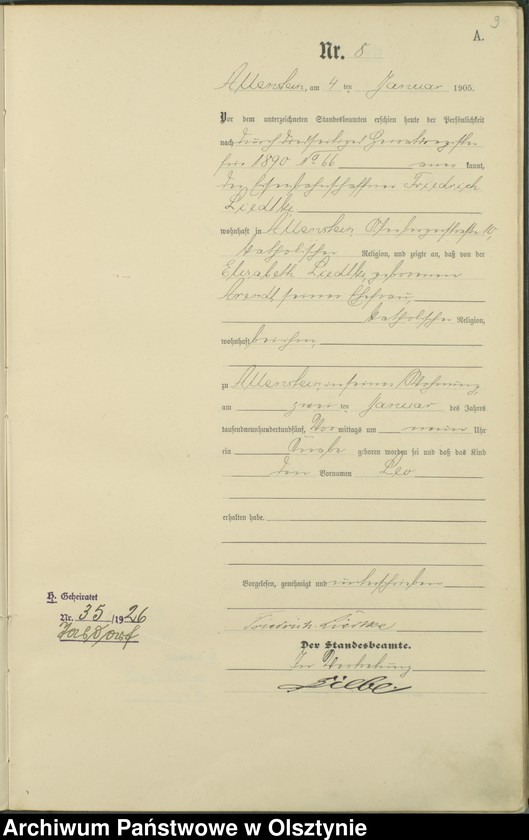 9
A.
Nr. 8
Allenstein, am 4 ten Januar 1905.
Vor dem unterzeichneten Standesbeamten erschien heute der Persönlichkeit
nach durch
für 1890 No 66 aner kannt,
der Eisenbahnschaffner Friedrich
Liedtke
wohnhaft in Allenstein, 10,
katholischer Religion, und zeigte an, daß von der
Elisabeth Liedtke geborenen
Arendt seiner Ehefrau,
katholischer Religion,
wohnhaft bei ihm,
zu Allenstein in seiner Wohnung
am zwei ten Januar des Jahres
tausendneunhundertundfünf, Vor mittags um neun Uhr
ein Knabe geboren worden sei und daß das Kind
den Vornamen Leo
erhalten habe.
Vorgelesen, genehmigt und unterschrieben
Friedrich Liedtke
Der Standesbeamte.
In Vertretung
H. Geheiratet
Nr. 35/1926
Archiwum Państwowe w Olsztynie